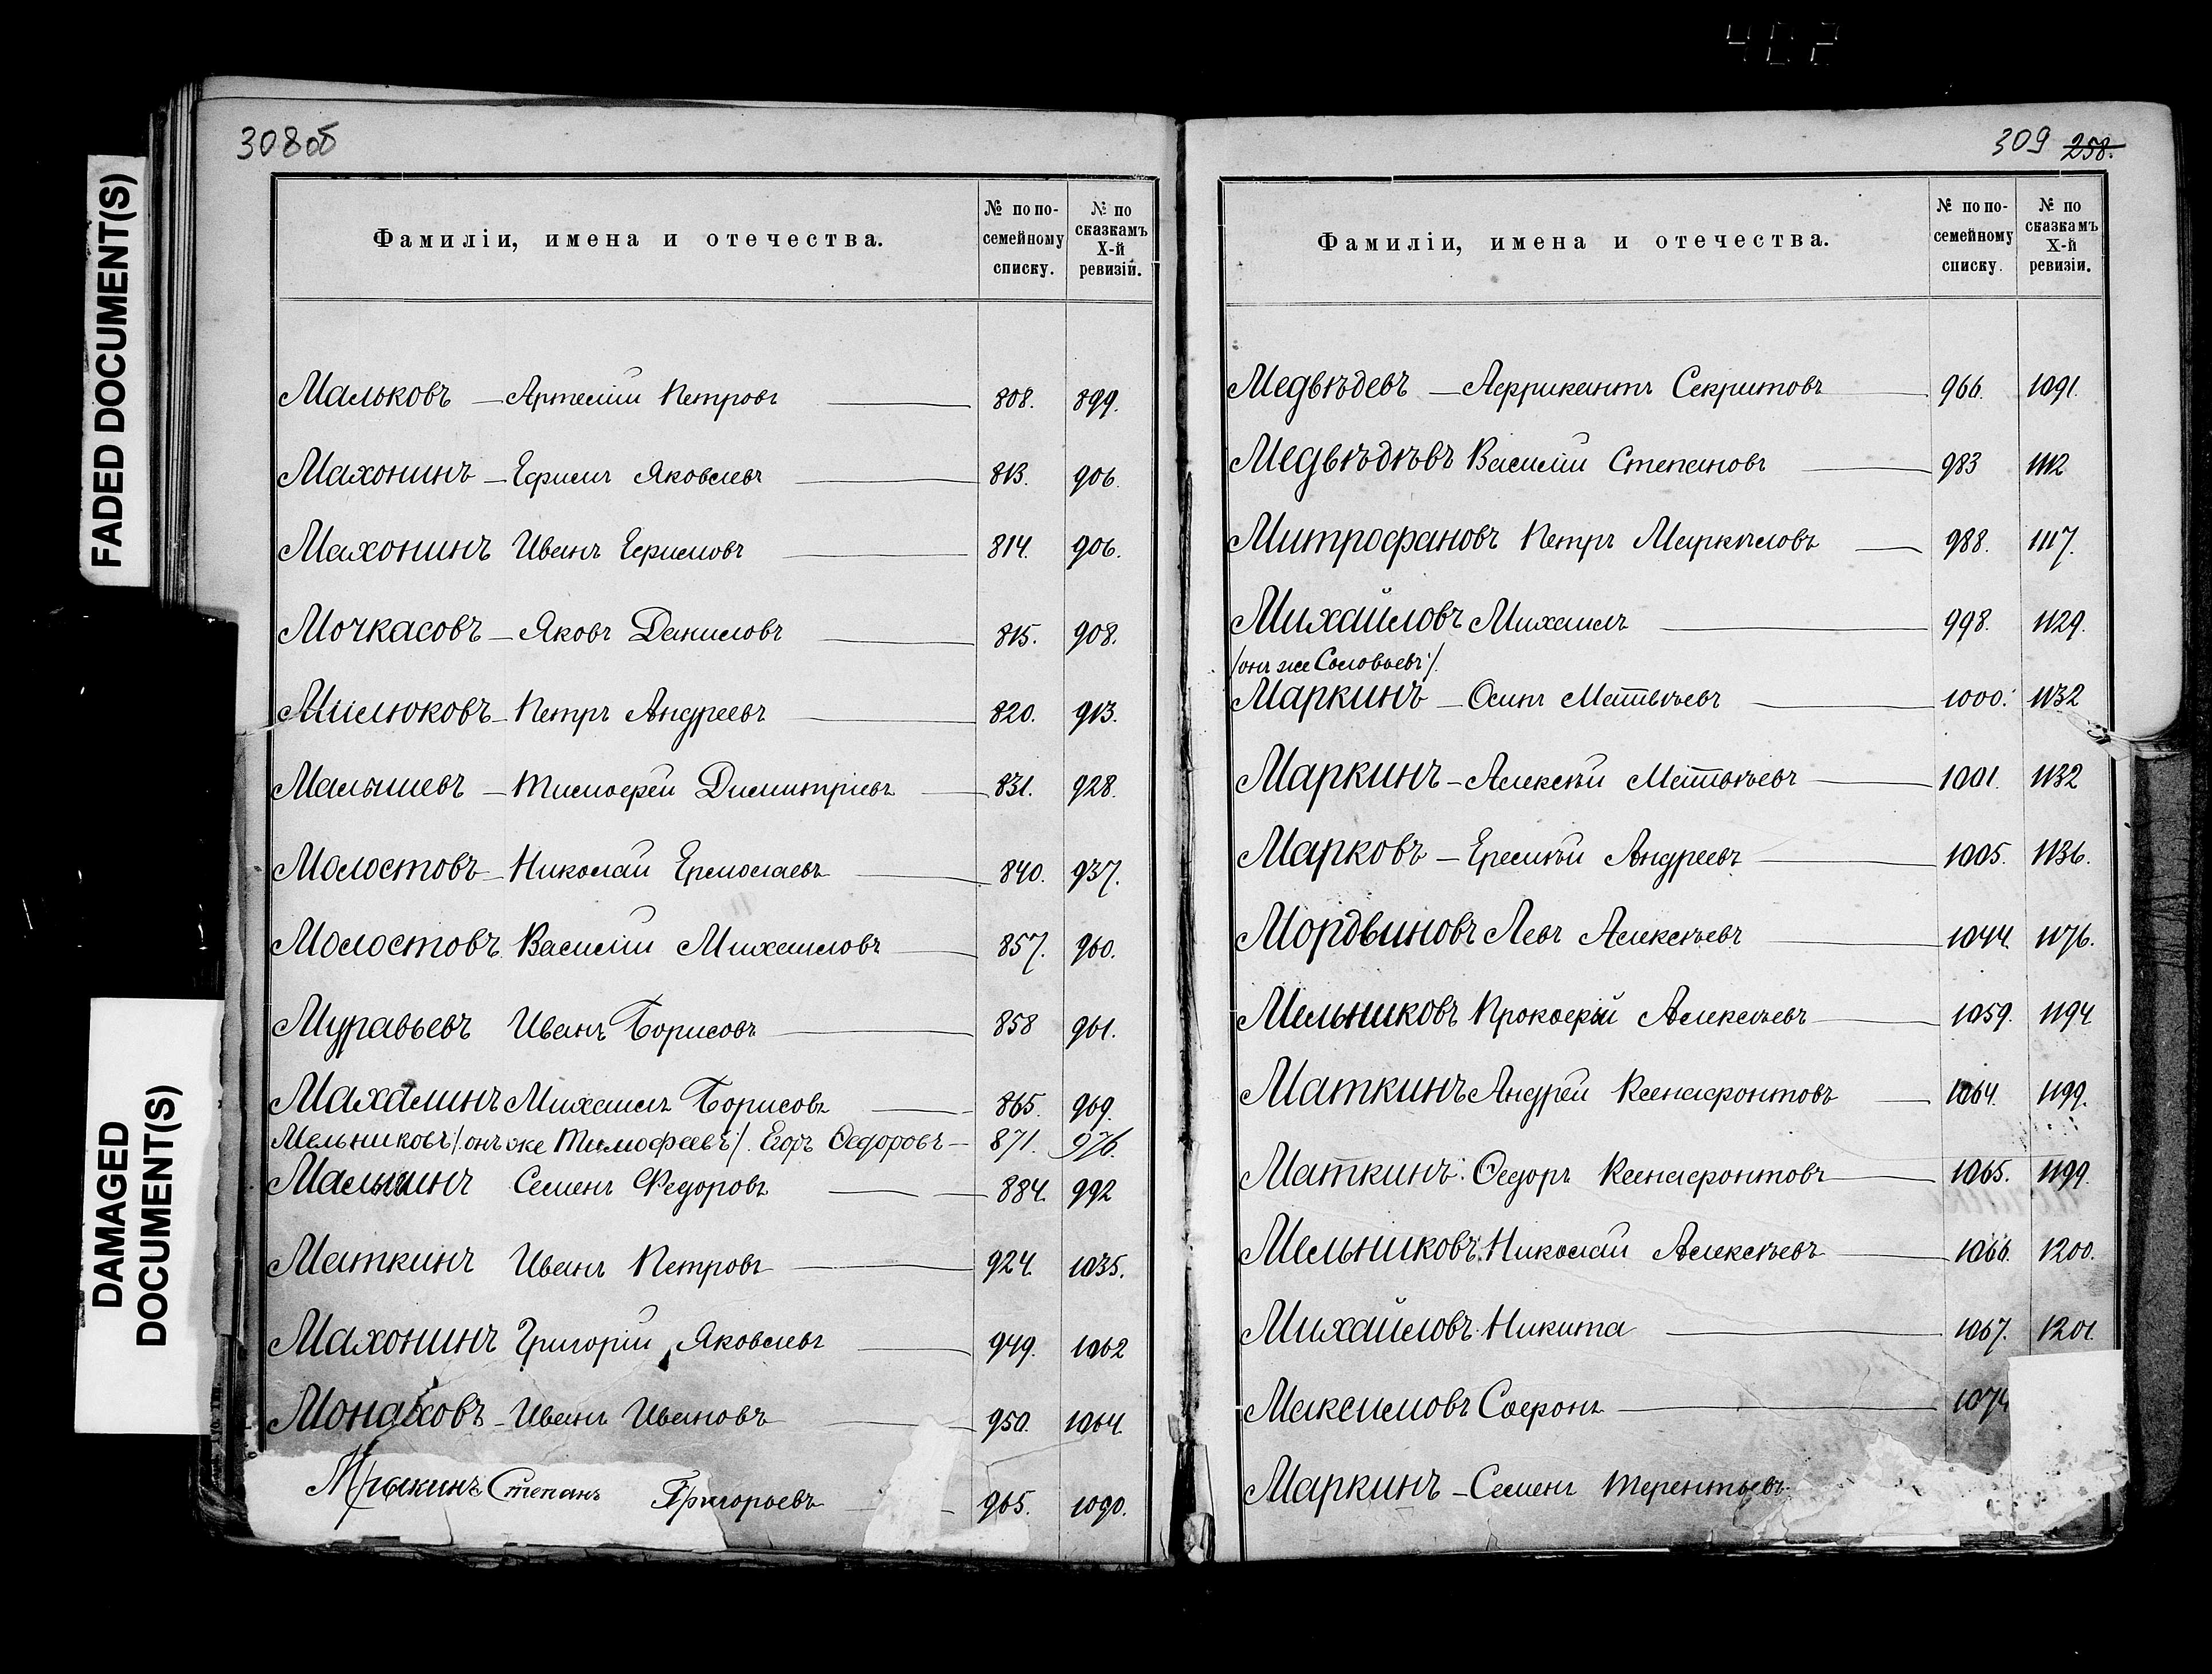 402
308об
FADED DOCUMENT(S)
DAMAGED
DOCUMENT(S)
Фамиліи, имена и отечества.
№ по по-
семейному
списку.
№ по
сказкамъ
X-й
ревизіи.
Мальковъ — Артемій Петровъ — 808. 899.
Махонинъ — Ефимъ Яковлевъ — 813. 906.
Махонинъ Иванъ Ефимовъ — 814. 906.
Мочкасовъ — Яковъ Даниловъ — 815. 908.
Милюковъ — Петръ Андреевъ — 820. 913.
Малышевъ — Тимофей Димитріевъ — 831. 928.
Молостовъ — Николай Ермолаевъ — 840. 937.
Молостовъ Василій Михайловъ — 857. 960.
Муравьевъ Иванъ Борисовъ — 858 961.
Махалинъ Михаилъ Борисовъ — 865. 969.
Мельниковъ /онъ же Тимофеевъ/. Егоръ Ѳедоровъ — 871. 976.
Малышинъ Семенъ Федоровъ — 884. 992
Маткинъ Иванъ Петровъ — 924. 1035.
Махонинъ Григорій Яковлевъ — 949. 1062
Монаховъ — Иванъ Ивановъ — 950. 1064.
Степанъ Григорьевъ — 965. 1090.
309 258.
Фамиліи, имена и отечества.
№ по по-
семейному
списку.
№ по
сказкамъ
X-й
ревизіи.
Медвѣдевъ — Аффикантъ Секритовъ — 966. 1091.
Медвѣдѣвъ Василій Степановъ — 983 1112
Митрофановъ Петръ Маркѣловъ — 988. 1117.
Михайловъ Михаилъ — 998. 1129.
/онъ же Соловьевъ/.
Маркинъ — Осипъ Матвѣевъ — 1000. 1132
Маркинъ — Алексѣй Матвѣевъ — 1001. 1132
Марковъ — Еремѣй Андреевъ — 1005. 1136.
Мордвиновъ Левъ Алексѣевъ — 1044. 1176.
Мельниковъ Прокофій Алексѣевъ — 1059. 1194
Маткинъ Андрей Ксенафонтовъ — 1064. 1199.
Маткинъ Ѳедоръ Ксенафонтовъ — 1065. 1199.
Мельниковъ Николай Алексѣевъ — 1066. 1200.
Михайловъ Никита — 1067. 1201
Максимовъ Софронъ — 1074
Маркинъ — Семенъ Терентьевъ